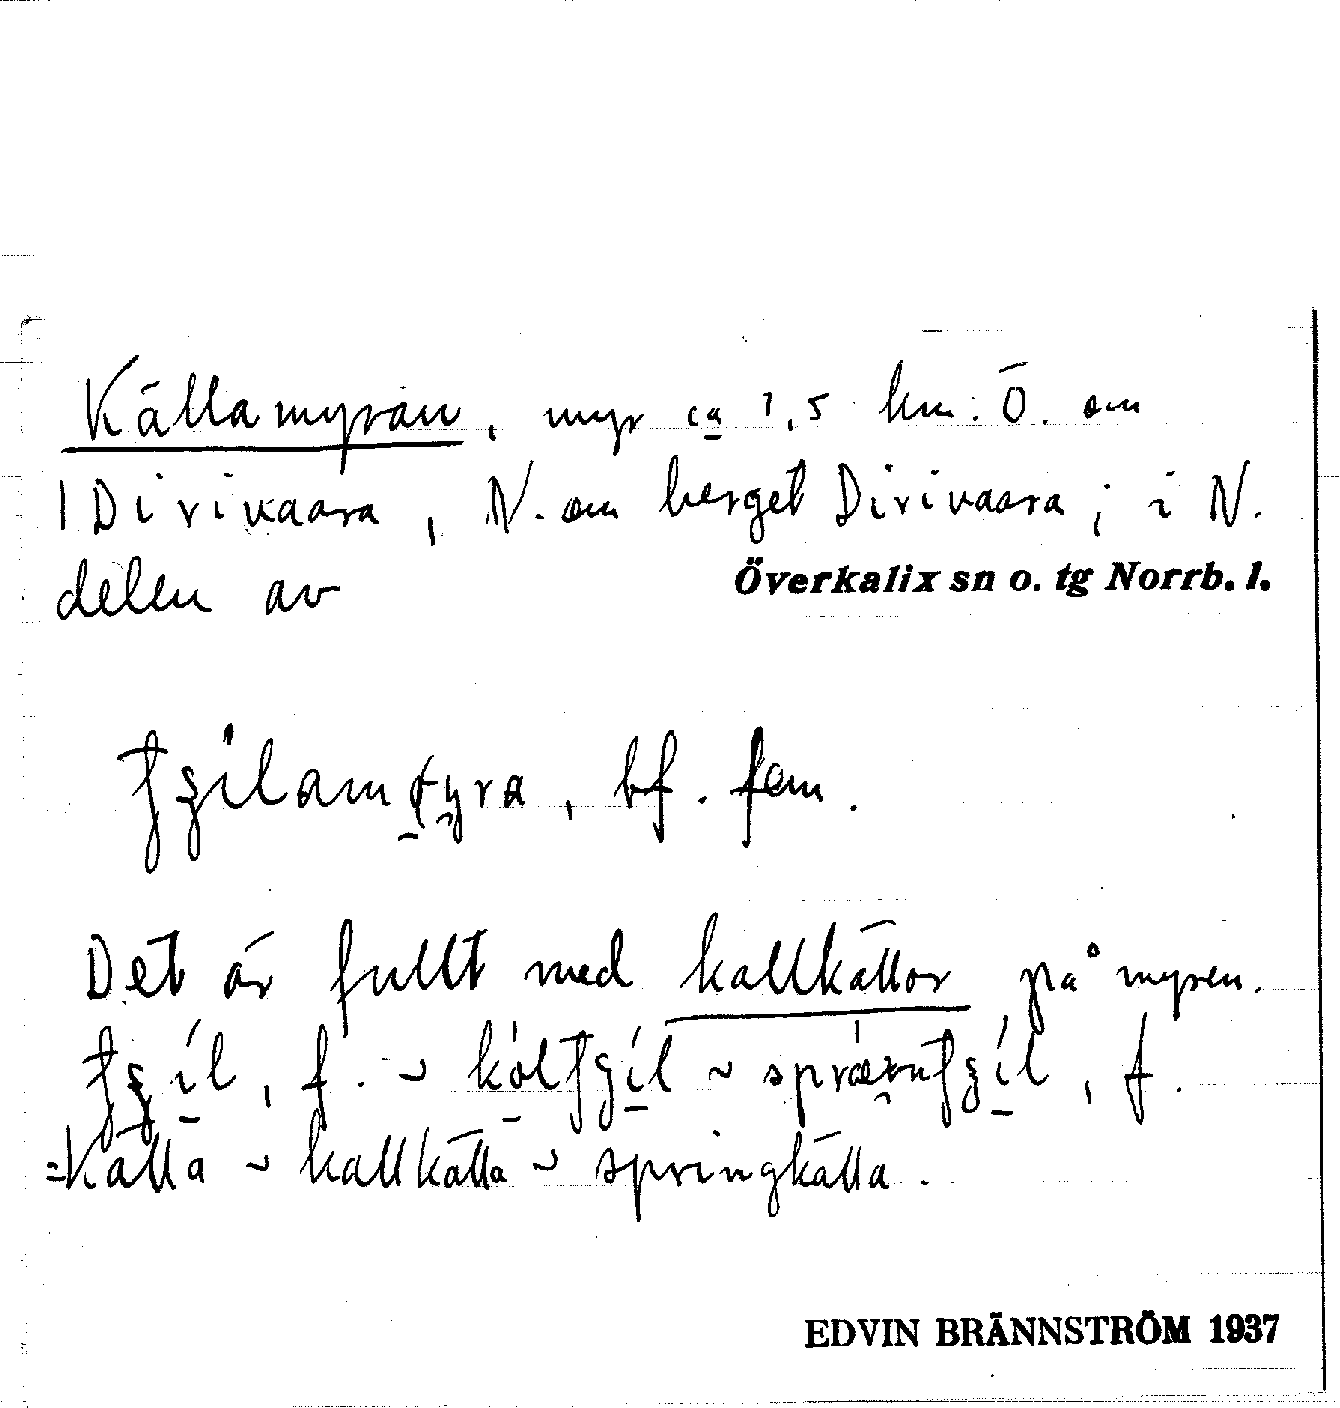 Källamyran, myr ca 1,5 km. Ö. om
Dirivaara, N. om berget Dirivaara; i N.
delen av Överkalix sn o. tg Norrb. l.
bf. fem.
Det är fullt med kallkällor på myren.
f. ~ ~ , f.
=Källa ~ kallkälla ~ springkälla.
EDVIN BRÄNNSTRÖM 1937